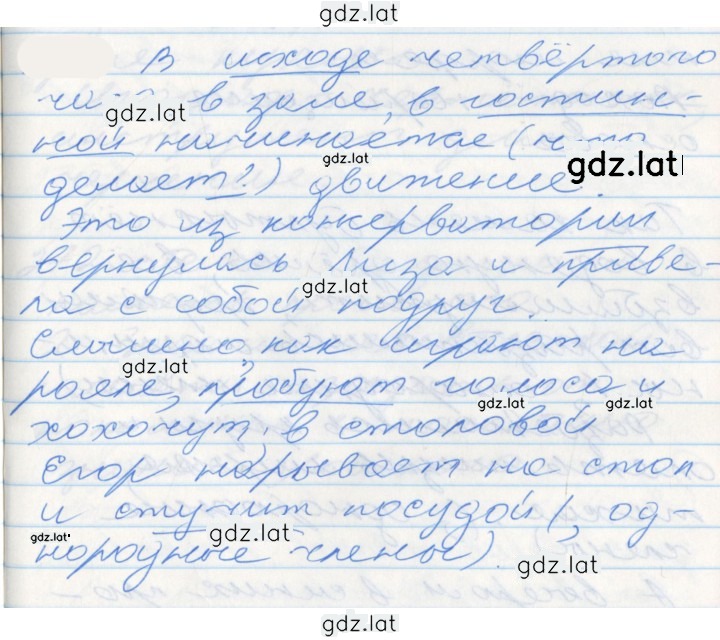 gdz.lat
В исходе четвёртого
часа в зале, в гостин-
gdz.lat
ной начинается (что
gdz.lat
gdz.lat
делает?) движение.
Это из консерватории
вернулась Лиза и приве-
gdz.lat
ла с собой подруг.
Слышно, как играют на
gdz.lat
рояле, пробуют голоса и
gdz.lat gdz.lat
хохочут, в столовой
Егор накрывает на стол
и стучит посудой (, од-
gdz.lat gdz.lat
нородные члены).
gdz.lat
gdz.lat